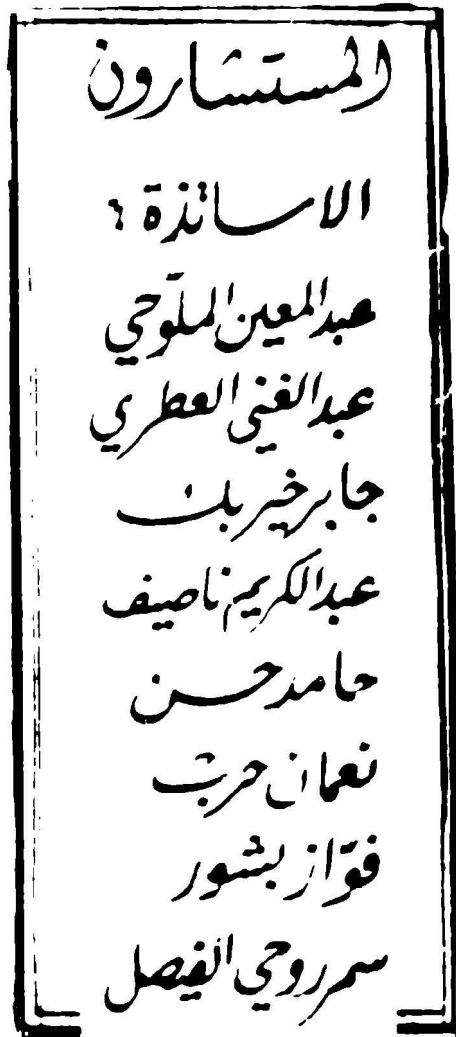 المستشارون
الاساتذة :
عبدالمعين الملّوحي
عبدالغني العطري
جابر خير بك
عبدالكريم ناصيف
حامد حسن
نعمان حرب
فوّاز بشور
سمر روحي الفيصل